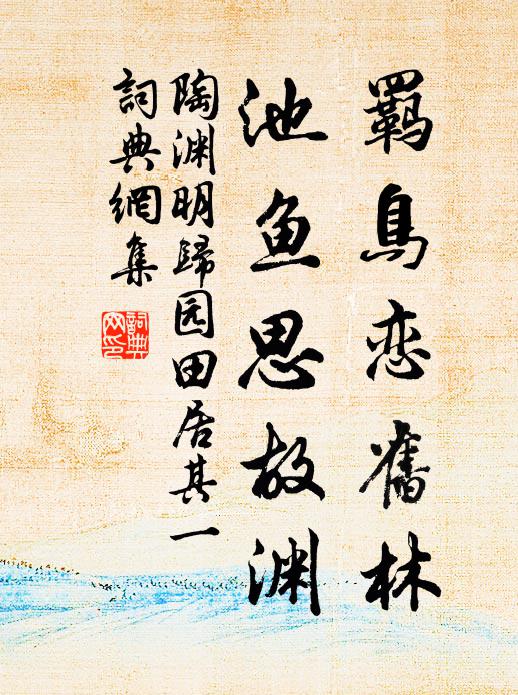 羈鳥恋舊林
池鱼思故渊
陶渊明歸园田居其一
詞典網集
詞典網印